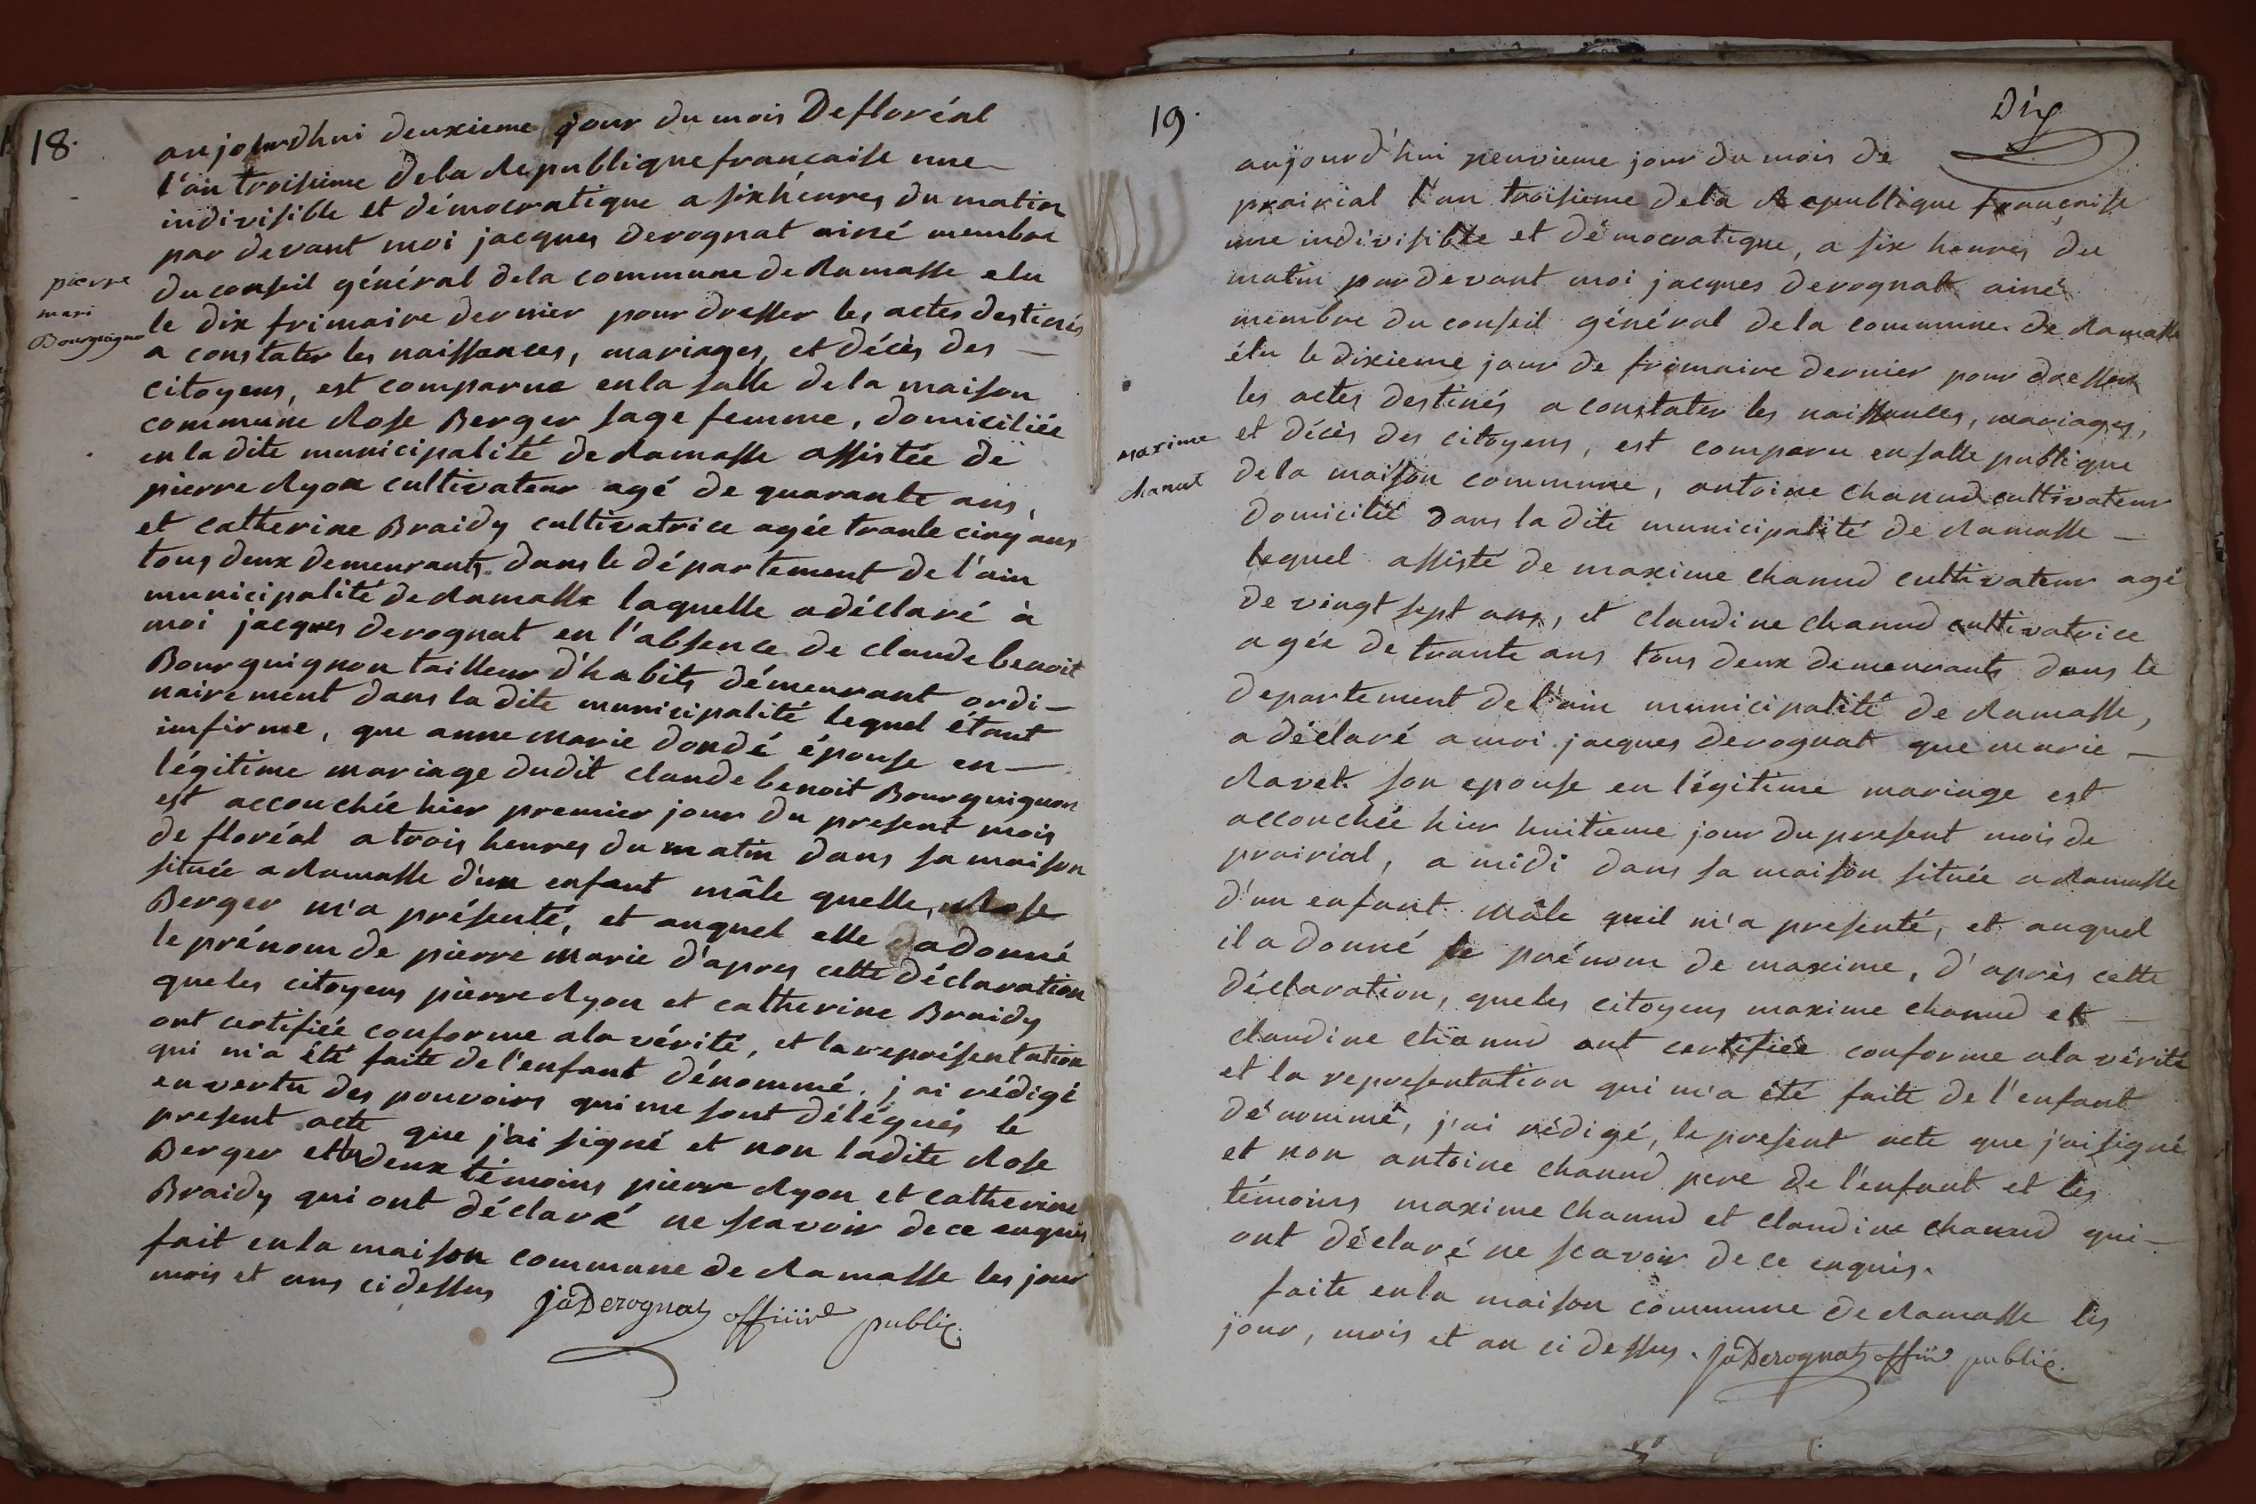 18.
aujourdhui deuxieme jour du mois De floréal
l'an troisieme dela République francaise une
indivisible et démocratique a six heures du matin
par devant moi jacques derognat ainé membre
du conseil général dela commune de Ramasse elu
le dix frimaire dernier pour dresser les actes destinés
a constater les naissances, mariages, et décès des —
citoyens, est comparue en la salle de la maison
commune Rose Berger sage femme, domiciliée
en la dite municipalité de Ramasse assistée de
pierre Ryon cultivateur agé de quarante ans,
et catherine Braidy cultivatrice agée trante cinq ans
tous deux demeurants dans le département de l'ain
municipalité de Ramasse laquelle a déclaré à
moi jacques derognat en l'absence de claude benoit
Bourguignon tailleur d'habits démeurant ordi-
nairement dans la dite municipalité lequel étant
imfirme, que anne marie dondé épouse en —
légitime mariage dudit claude benoit Bourguignon
est accouchée hier premier jour du present mois
de floréal a trois heures du matin dans sa maison
située a Ramasse d'un enfant mâle quelle, Rose
Berger m'a présenté, et auquel elle a donné
le prénom de pierre marie d'apres cette déclaration
que les citoyens pierre Ryon et catherine Braidy
ont certifiée conforme a la vérité, et la représentation
qui m'a été faite de l'enfant dénommé, j'ai rédigé
en vertu des pouvoirs qui me sont délégués le
present acte que j'ai signé et non ladite Rose
Berger et les deux témoins pierre Ryon et catherine
Braidy qui ont déclaré ne scavoir de ce enquis,
fait en la maison commune de Ramasse les jour
mois et ans ci dessus ja Derognat officié public
pierre
mari
Bourguignon
19.
Dix
aujourd'hui neuvieme jour du mois de
prairial l'an troisieme dela République francaise
une indivisible et démocratique, a six heures du
matin par devant moi jacques derognat ainé
membre du conseil général dela commune de Ramasse
élu le dixieme jour de frimaire dernier pour dresser
les actes destinés a constater les naissances, mariages,
et décès des citoyens, est comparu en salle publique
dela maison commune, antoine chanud cultivateur
domicilié dans la dite municipalité de Ramasse —
lequel assisté de maxime chanud cultivateur agé
de vingt sept ans, et claudine chanud cultivatrice
agée de trante ans tous deux demeurants dans le
departement de l'ain municipalité de Ramasse,
a déclaré a moi jacques derognat que marie —
Ravet son epouse en légitime mariage est
accouchée hier huitieme jour du present mois de
prairial, a midi dans sa maison située a Ramasse
d'un enfant mâle quil m'a presenté, et auquel
il a donné le prénom de maxime, d'après cette
déclaration, que les citoyens maxime chanud et —
claudine chanud ont certifiée conforme a la vérité
et la representation qui m'a été faite de l'enfant
dénommé, j'ai rédigé, le present acte que j'ai signé
et non antoine chanud pere de l'enfant et les
témoins maxime chanud et claudine chanud qui —
ont déclaré ne scavoir de ce enquis.
faite en la maison commune de Ramasse les
jour, mois et an ci dessus. ja Derognat officié public.
maxime
chanut